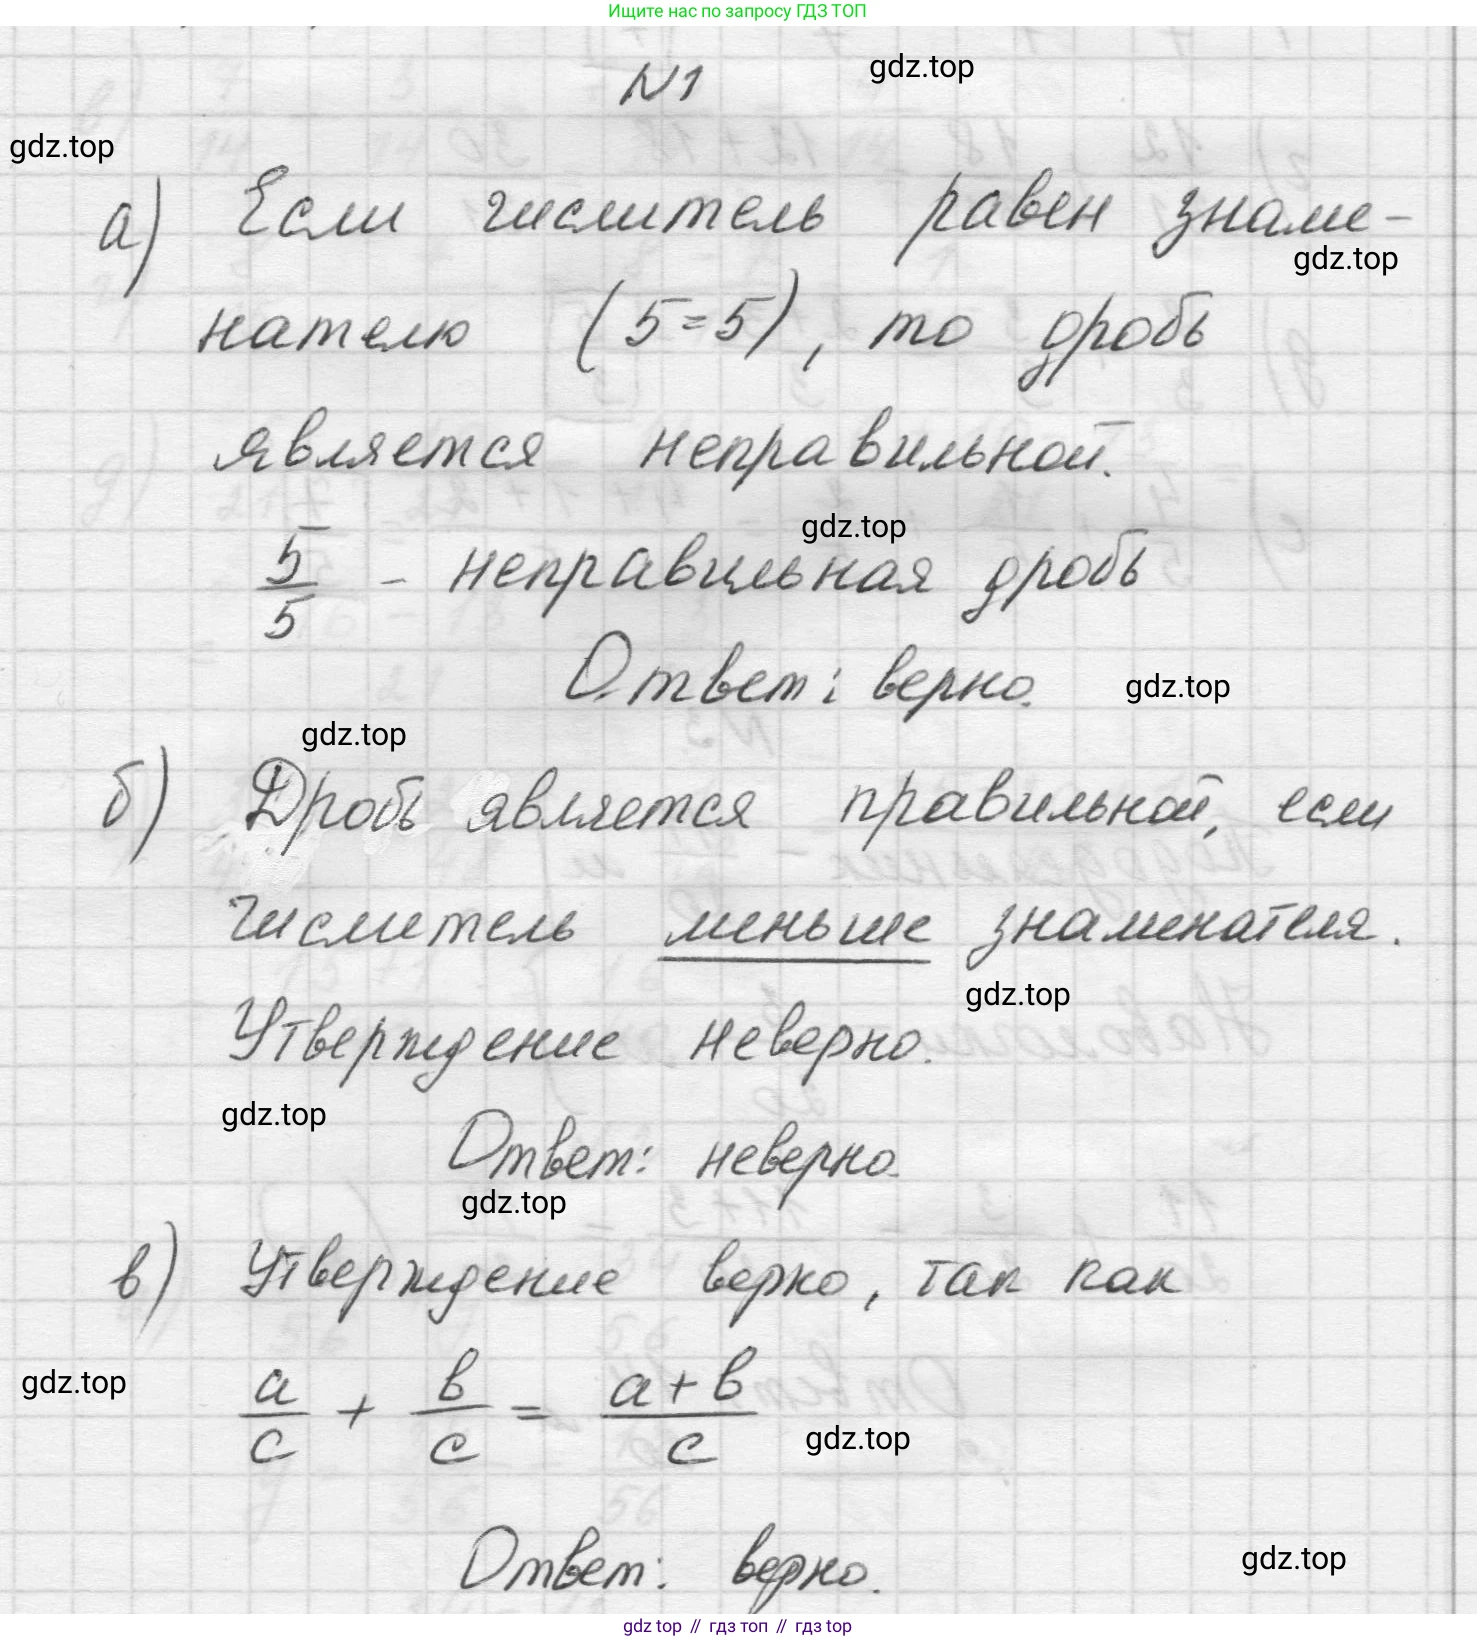 Ищите нас по запросу ГДЗ ТОП
N1
gdz.top
gdz.top
а) Если числитель равен знаме-
gdz.top
нателю (5=5), то дробь
является неправильной.
gdz.top
5/5 - неправильная дробь
Ответ: верно.
gdz.top
gdz.top
б) Дробь является правильной, если
числитель меньше знаменателя.
gdz.top
Утверждение неверно.
gdz.top
Ответ: неверно.
gdz.top
в) Утверждение верно, так как
gdz.top
a/c + b/c = a+b/c
gdz.top
Ответ: верно.
gdz.top
gdz.top // гдз топ // гдз.top